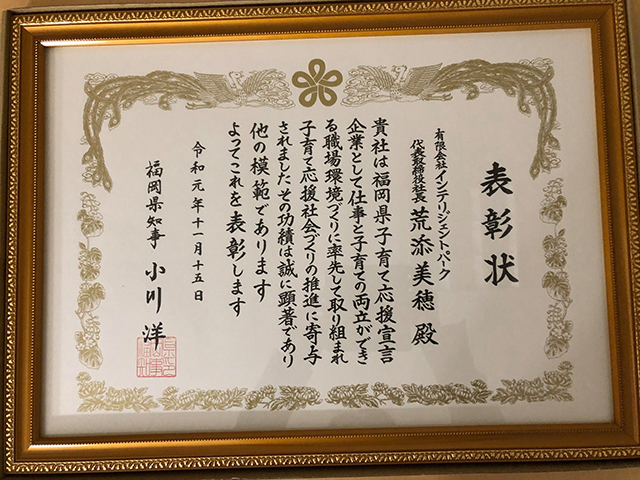 表彰状
有限会社インテリジェントパーク
代表取締役社長 荒添美穂 殿
貴社は福岡県子育て応援宣言
企業として仕事と子育ての両立ができ
る職場環境づくりに率先して取り組まれ
子育て応援社会づくりの推進に寄与
されましたその功績は誠に顕著であり
他の模範であります
よってこれを表彰します
令和元年十一月十五日
福岡県知事 小川洋